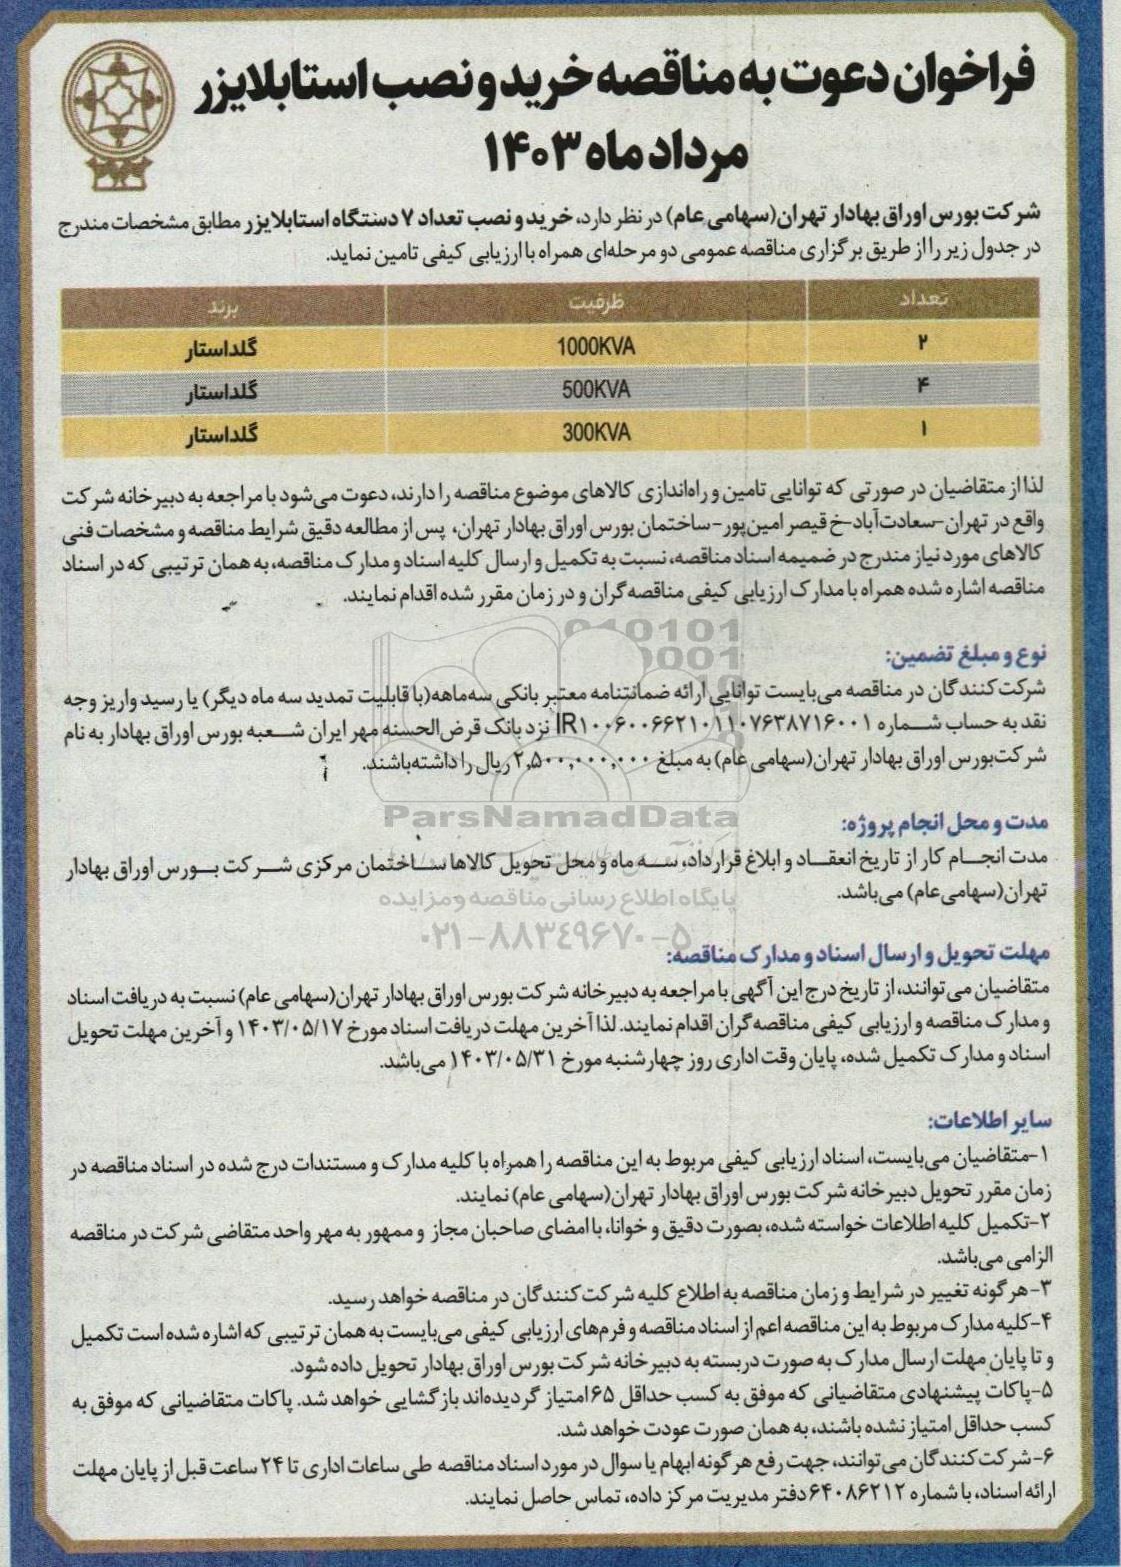 فراخوان دعوت به مناقصه خرید و نصب استابلایزر
مرداد ماه ۱۴۰۳
شرکت بورس اوراق بهادار تهران(سهامی عام) در نظر دارد، خرید و نصب تعداد ۷ دستگاه استابلایزر مطابق مشخصات مندرج
در جدول زیر را از طریق برگزاری مناقصه عمومی دو مرحله‌ای همراه با ارزیابی کیفی تامین نماید.
تعداد ظرفیت برند
۲ 1000KVA گلداستار
۴ 500KVA گلداستار
۱ 300KVA گلداستار
لذا از متقاضیان در صورتی که توانایی تامین و راه‌اندازی کالاهای موضوع مناقصه را دارند، دعوت می‌شود با مراجعه به دبیرخانه شرکت
واقع در تهران-سعادت‌آباد-خ قیصر امین‌پور-ساختمان بورس اوراق بهادار تهران، پس از مطالعه دقیق شرایط مناقصه و مشخصات فنی
کالاهای مورد نیاز مندرج در ضمیمه اسناد مناقصه، نسبت به تکمیل و ارسال کلیه اسناد و مدارک مناقصه، به همان ترتیبی که در اسناد
مناقصه اشاره شده همراه با مدارک ارزیابی کیفی مناقصه‌گران و در زمان مقرر شده اقدام نمایند.
نوع و مبلغ تضمین:
شرکت‌کنندگان در مناقصه می‌بایست توانایی ارائه ضمانتنامه معتبر بانکی سه‌ماهه(با قابلیت تمدید سه ماه دیگر) یا رسید واریز وجه
نقد به حساب شماره IR۱۰۰۶۰۰۶۶۲۱۰۱۱۰۷۶۳۸۷۱۶۰۰۱ نزد بانک قرض‌الحسنه مهر ایران شعبه بورس اوراق بهادار به نام
شرکت‌بورس اوراق بهادار تهران(سهامی عام) به مبلغ ۲,۵۰۰,۰۰۰,۰۰۰ ریال را داشته‌باشند.
ParsNamadData
مدت و محل انجام پروژه:
مدت انجام کار از تاریخ انعقاد و ابلاغ قرارداد، سه ماه و محل تحویل کالاها ساختمان مرکزی شرکت بورس اوراق بهادار
تهران(سهامی‌عام) می‌باشد.
پایگاه اطلاع رسانی مناقصه و مزایده
۰۲۱-۸۸۳۴۹۶۷۰-۵
مهلت تحویل و ارسال اسناد و مدارک مناقصه:
متقاضیان می‌توانند، از تاریخ درج این آگهی با مراجعه به دبیرخانه شرکت بورس اوراق بهادار تهران(سهامی عام) نسبت به دریافت اسناد
و مدارک مناقصه و ارزیابی کیفی مناقصه‌گران اقدام نمایند. لذا آخرین مهلت دریافت اسناد مورخ ۱۴۰۳/۰۵/۱۷ و آخرین مهلت تحویل
اسناد و مدارک تکمیل شده، پایان وقت اداری روز چهارشنبه مورخ ۱۴۰۳/۰۵/۳۱ می‌باشد.
سایر اطلاعات:
۱-متقاضیان می‌بایست، اسناد ارزیابی کیفی مربوط به این مناقصه را همراه با کلیه مدارک و مستندات درج شده در اسناد مناقصه در
زمان مقرر تحویل دبیرخانه شرکت بورس اوراق بهادار تهران(سهامی عام) نمایند.
۲-تکمیل کلیه اطلاعات خواسته شده، بصورت دقیق و خوانا، با امضای صاحبان مجاز و ممهور به مهر واحد متقاضی شرکت در مناقصه
الزامی می‌باشد.
۳-هرگونه تغییر در شرایط و زمان مناقصه به اطلاع کلیه شرکت‌کنندگان در مناقصه خواهد رسید.
۴-کلیه مدارک مربوط به این مناقصه اعم از اسناد مناقصه و فرم‌های ارزیابی کیفی می‌بایست به همان ترتیبی که اشاره شده است تکمیل
و تا پایان مهلت ارسال مدارک به صورت دربسته به دبیرخانه شرکت بورس اوراق بهادار تحویل داده شود.
۵-پاکات پیشنهادی متقاضیانی که موفق به کسب حداقل ۶۵ امتیاز گردیده‌اند بازگشایی خواهد شد. پاکات متقاضیانی که موفق به
کسب حداقل امتیاز نشده باشند، به همان صورت عودت خواهد شد.
۶-شرکت‌کنندگان می‌توانند، جهت رفع هرگونه ابهام یا سوال در مورد اسناد مناقصه طی ساعات اداری تا ۲۴ ساعت قبل از پایان مهلت
ارائه اسناد، با شماره ۶۴۰۸۶۲۱۲ دفتر مدیریت مرکز داده، تماس حاصل نمایند.